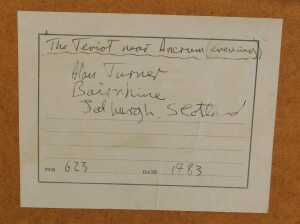 The Teviot near Ancrum (evening)
Alan Turner
Bairshine
Jedburgh, Scotland
FOR 623 DATE 1983